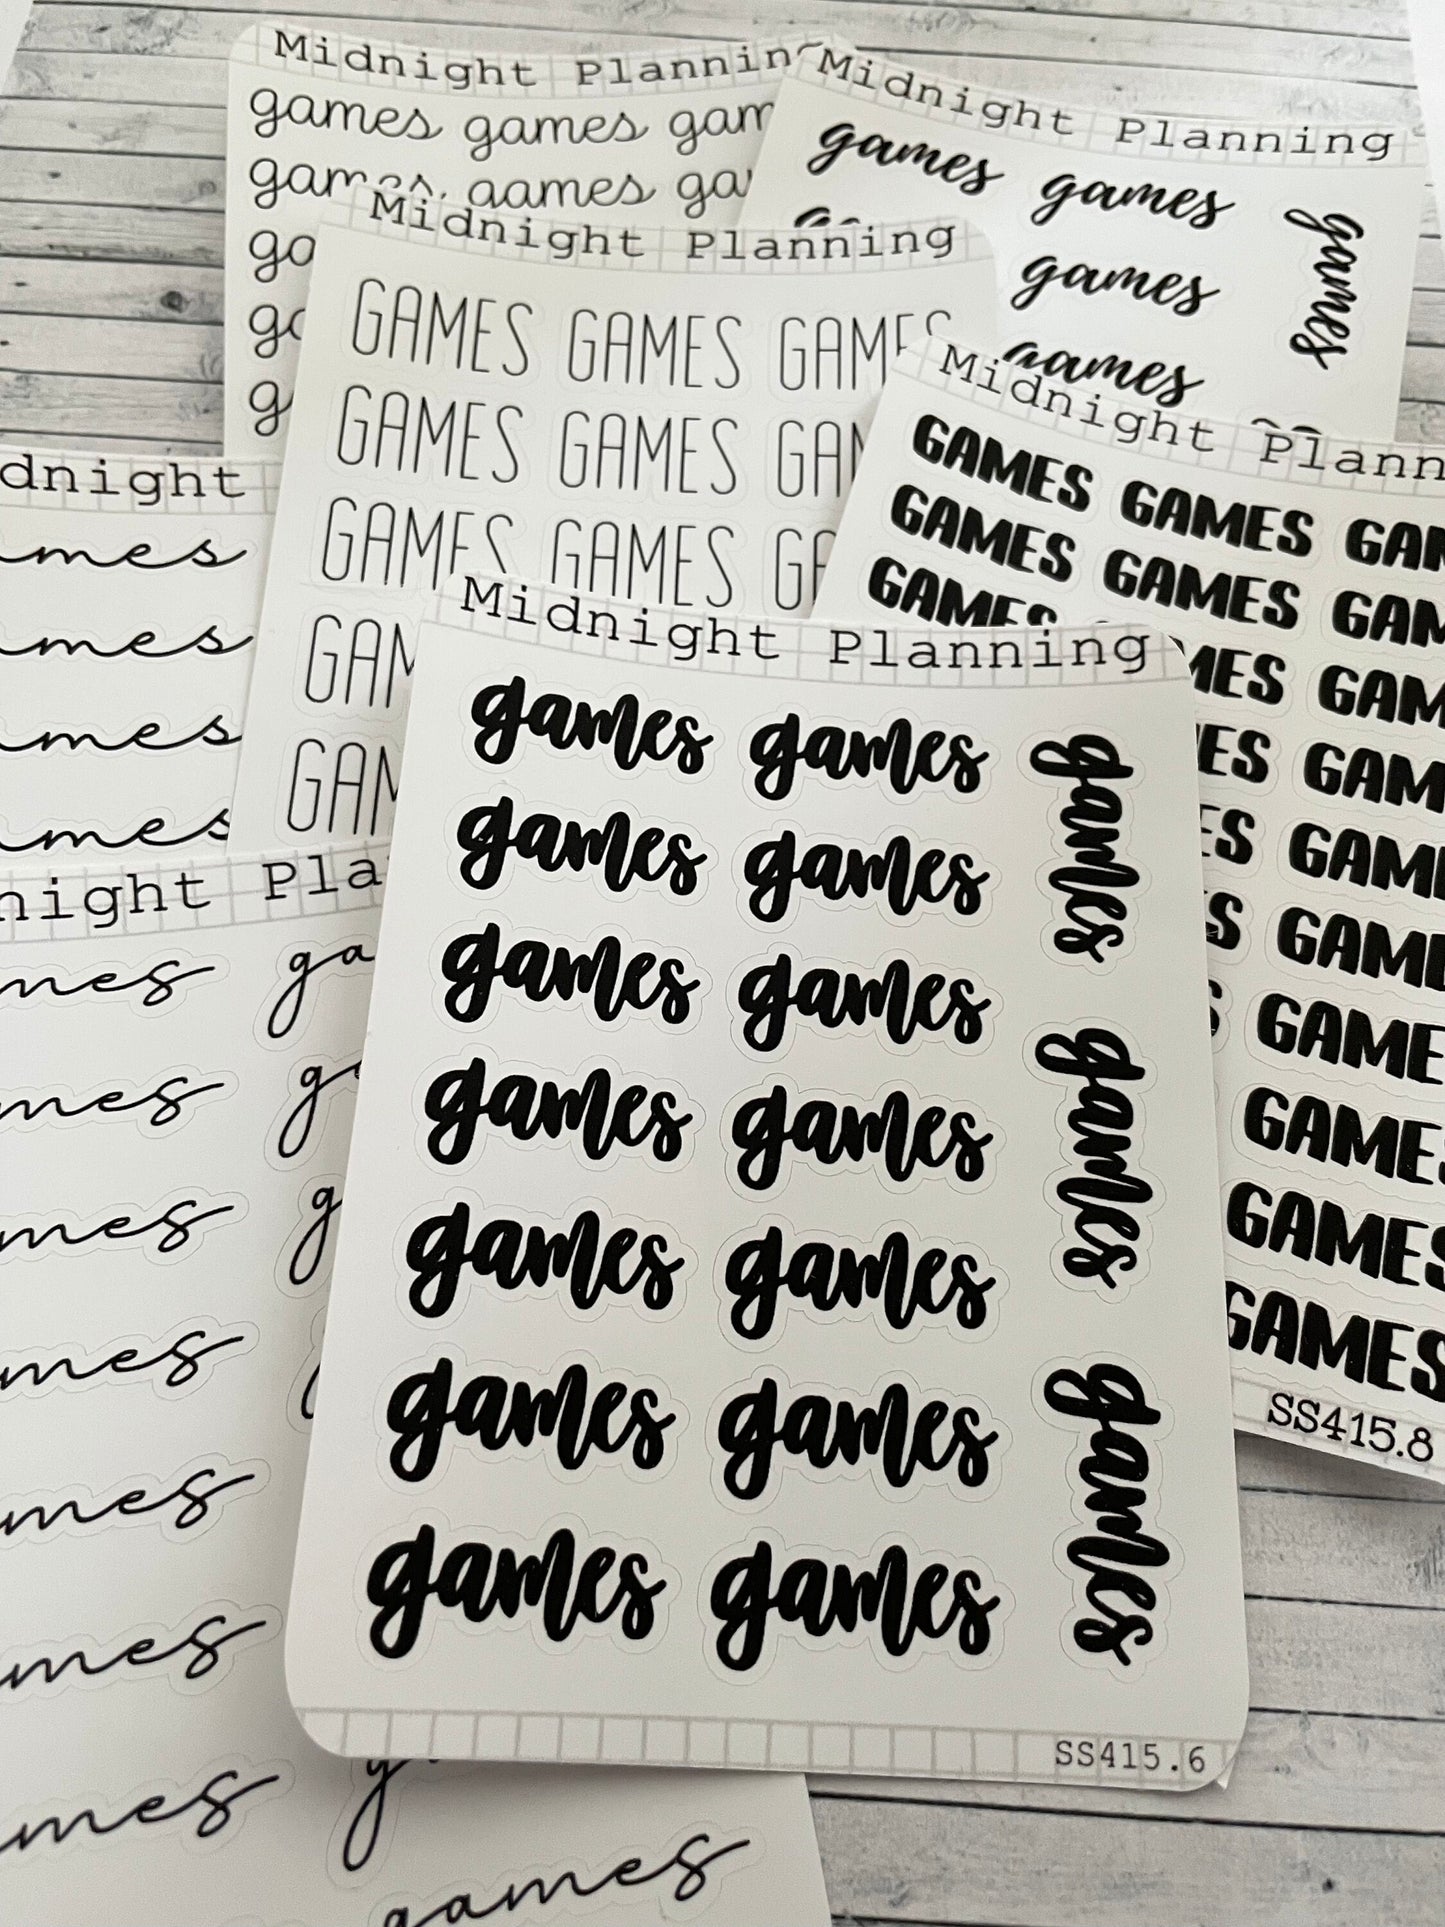 Midnight Plannin
games games gam
games games ga
go
go
g
Midnight Planning
games games games
games
games
Midnight Planning
GAMES GAMES GAMES
GAMES GAMES GAM
GAMES GAMES GA
GAM
GAM
Midnight Plann
GAMES GAMES GAM
GAMES GAMES GAM
GAMES
MES GAM
ES GAM
ES GAME
S GAME
S GAME
GAMES
GAMES
GAMES
SS415.8
dnight
mes
mes
mes
mes
night Pla
mes ga
mes ga
mes g
mes
mes
mes
mes
games
Midnight Planning
games games games
games games
games games
games games games
games games
games games games
games games
SS415.6